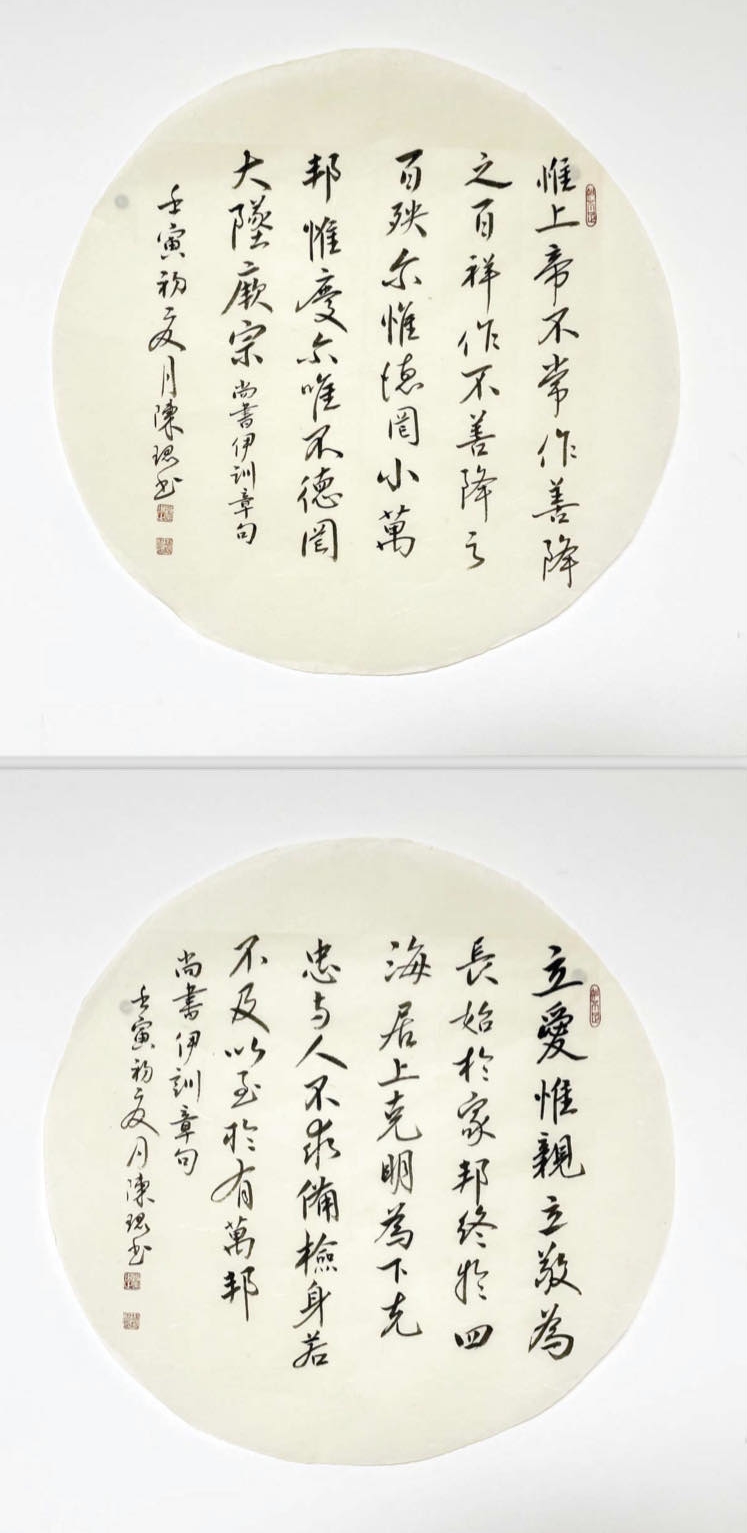 惟上帝不常作善降
之百祥作不善降之
百殃尔惟德罔小萬
邦惟慶尔唯不德罔
大墜厥宗 尚書伊訓章句
壬寅初夏月陳书
立愛惟親立敬為
長始於家邦終於四
海居上克明為下克
忠与人不求備檢身若
不及以至於有萬邦
尚書伊訓章句
壬寅初夏月陳书